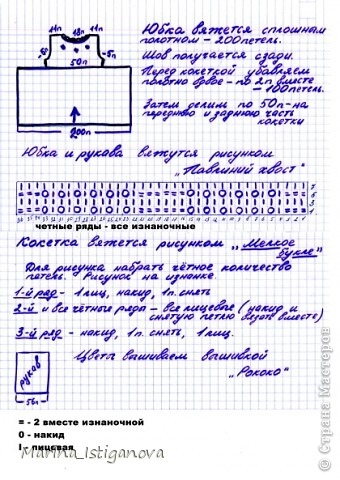 11п 18п 11п
Юбка вяжется сплошным
полотном - 200петель.
Шов получается сзади.
-5п -5п
50п
Перед кокеткой убавляем
полотно вдвое - по 2п вместе
- 100петель.
Затем делим по 50п-на
переднюю и заднюю часть
кокетки
200п
Юбка и рукава вяжутся рисунком
"Павлиний хвост"
четные ряды - все изнаночные
Кокетка вяжется рисунком „Мелкое
букле"
Для рисунка набрать чётное количество
петель. Рисунок на изнанке.
1-й ряд - 1 лиц, накид, 1п. снять
2-й и все чётные ряды - все лицевые (накид и
снятую петлю вяжем вместе)
3-й ряд - накид, 1п. снять, 1 лиц.
рукав
56п
Цветы вышиваем вышивкой
„Рококо"
= - 2 вместе изнаночной
0 - накид
I - лицевая
Marina_Istiganova
© Страна Мастеров